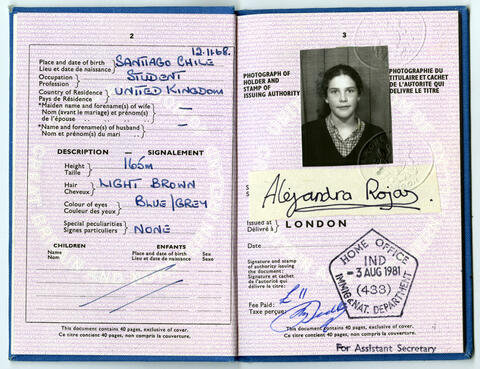 2
12.11.68.
Place and date of birth
Lieu et date de naissance
SANTIAGO CHILE
Occupation
Profession
STUDENT
Country of Residence
Pays de Résidence
UNITED KINGDOM
*Maiden name and forename(s) of wife
Nom (avant le mariage) et prénom(s)
de l'épouse
—
*Name and forename(s) of husband
Nom et prénom(s) du mari
—
DESCRIPTION — SIGNALEMENT
Height
Taille
165m
Hair
Cheveux
LIGHT BROWN
Colour of eyes
Couleur des yeux
BLUE/GREY
Special peculiarities
Signes particuliers
NONE
CHILDREN ENFANTS
Name Place and date of birth Sex
Nom Lieu et date de naissance Sexe
This document contains 40 pages, exclusive of cover.
Ce titre contient 40 pages, non compris la couverture.
3
PHOTOGRAPH OF
HOLDER AND
STAMP OF
ISSUING AUTHORITY
PHOTOGRAPHIE DU
TITULAIRE ET CACHET
DE L'AUTORITE QUI
DÉLIVRE LE TITRE
S
S
Alejandra Rojas.
Issued at
Délivré à
LONDON
Date
Signature and stamp
of authority issuing
the document:
Signature et cachet
de l'autorité qui
délivre le titre:
HOME OFFICE
IND
-3 AUG 1981
(433)
IMMIG & NAT. DEPARTMENT
Fee Paid:
Taxe perçue:
£11
This document contains 40 pages, exclusive of cover.
Ce titre contient 40 pages, non compris la couverture.
For Assistant Secretary